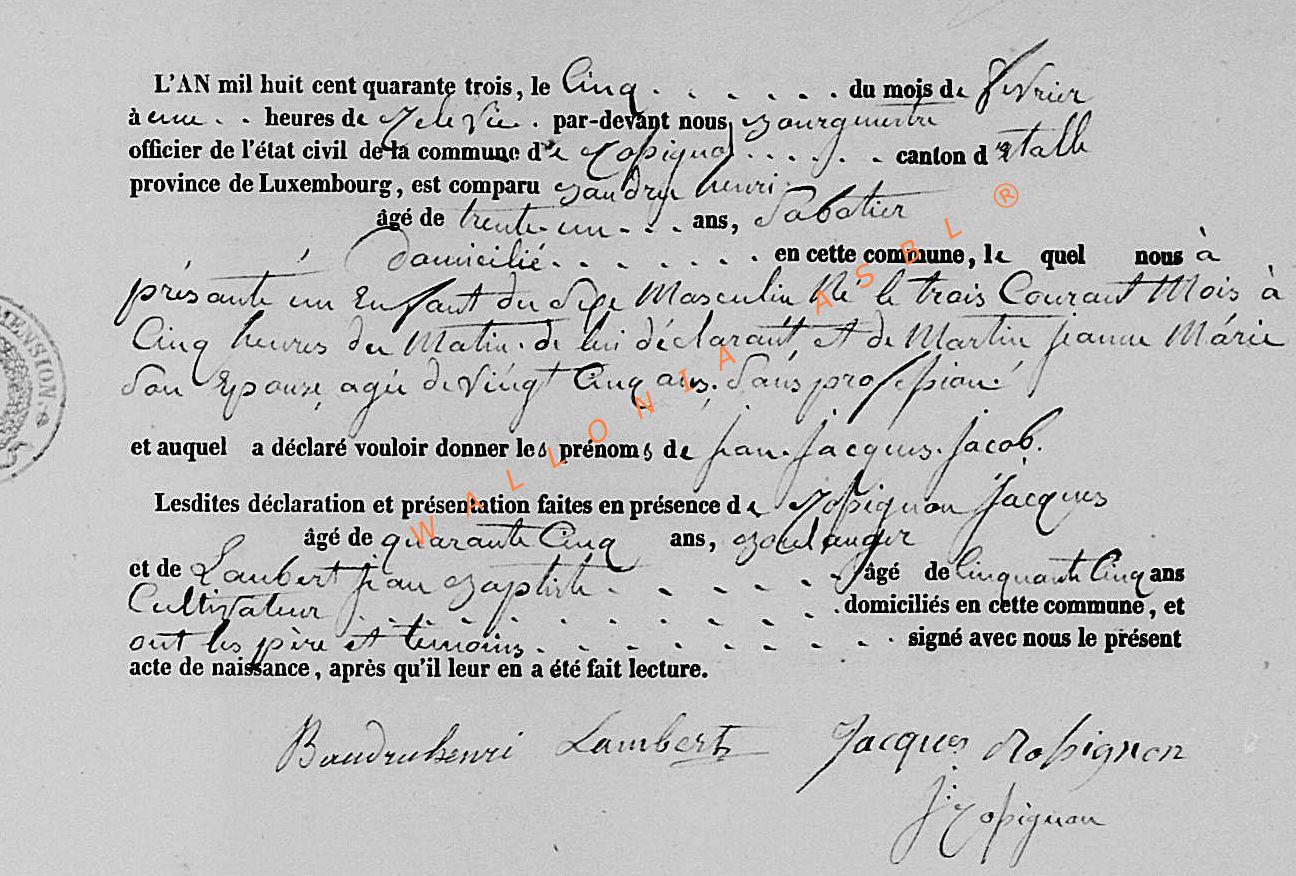 L'AN mil huit cent quarante trois, le Cinq . . . . . . du mois de fevrier
à une . . heures de relevie . par-devant nous, Bourguestre
officier de l'état civil de la commune de Rossignol . . . . . canton d'Etalle
province de Luxembourg, est comparu Baudru henri
âgé de trente-un . . . ans, Sabotier
Domicilié . . . . . . . . en cette commune, le quel nous à
présanté un Enfant du Sexe Masculin Né le trois Courant Mois à
Cinq heures du Matin. de lui déclarant, et de Martin jeanne Márie
Son Epouse, agée de vingt Cinq ans. Sans profession.
et auquel a déclaré vouloir donner les prénoms de jean. jacques. jacob.
Lesdites déclaration et présentation faites en présence de Rossignon Jacques
âgé de quarante Cinq ans, Boulanger
et de Lambert jean Baptiste . . . . . . âgé de Cinquante Cinq ans
Cultivateur . . . . . . . . domiciliés en cette commune, et
ont les père et temoins . . . . . . . . signé avec nous le présent
acte de naissance, après qu'il leur en a été fait lecture.
Baudru henri Lambert Jacques Rossignon
J: Rossignon
MENSION
WALLONIA ASBL ®